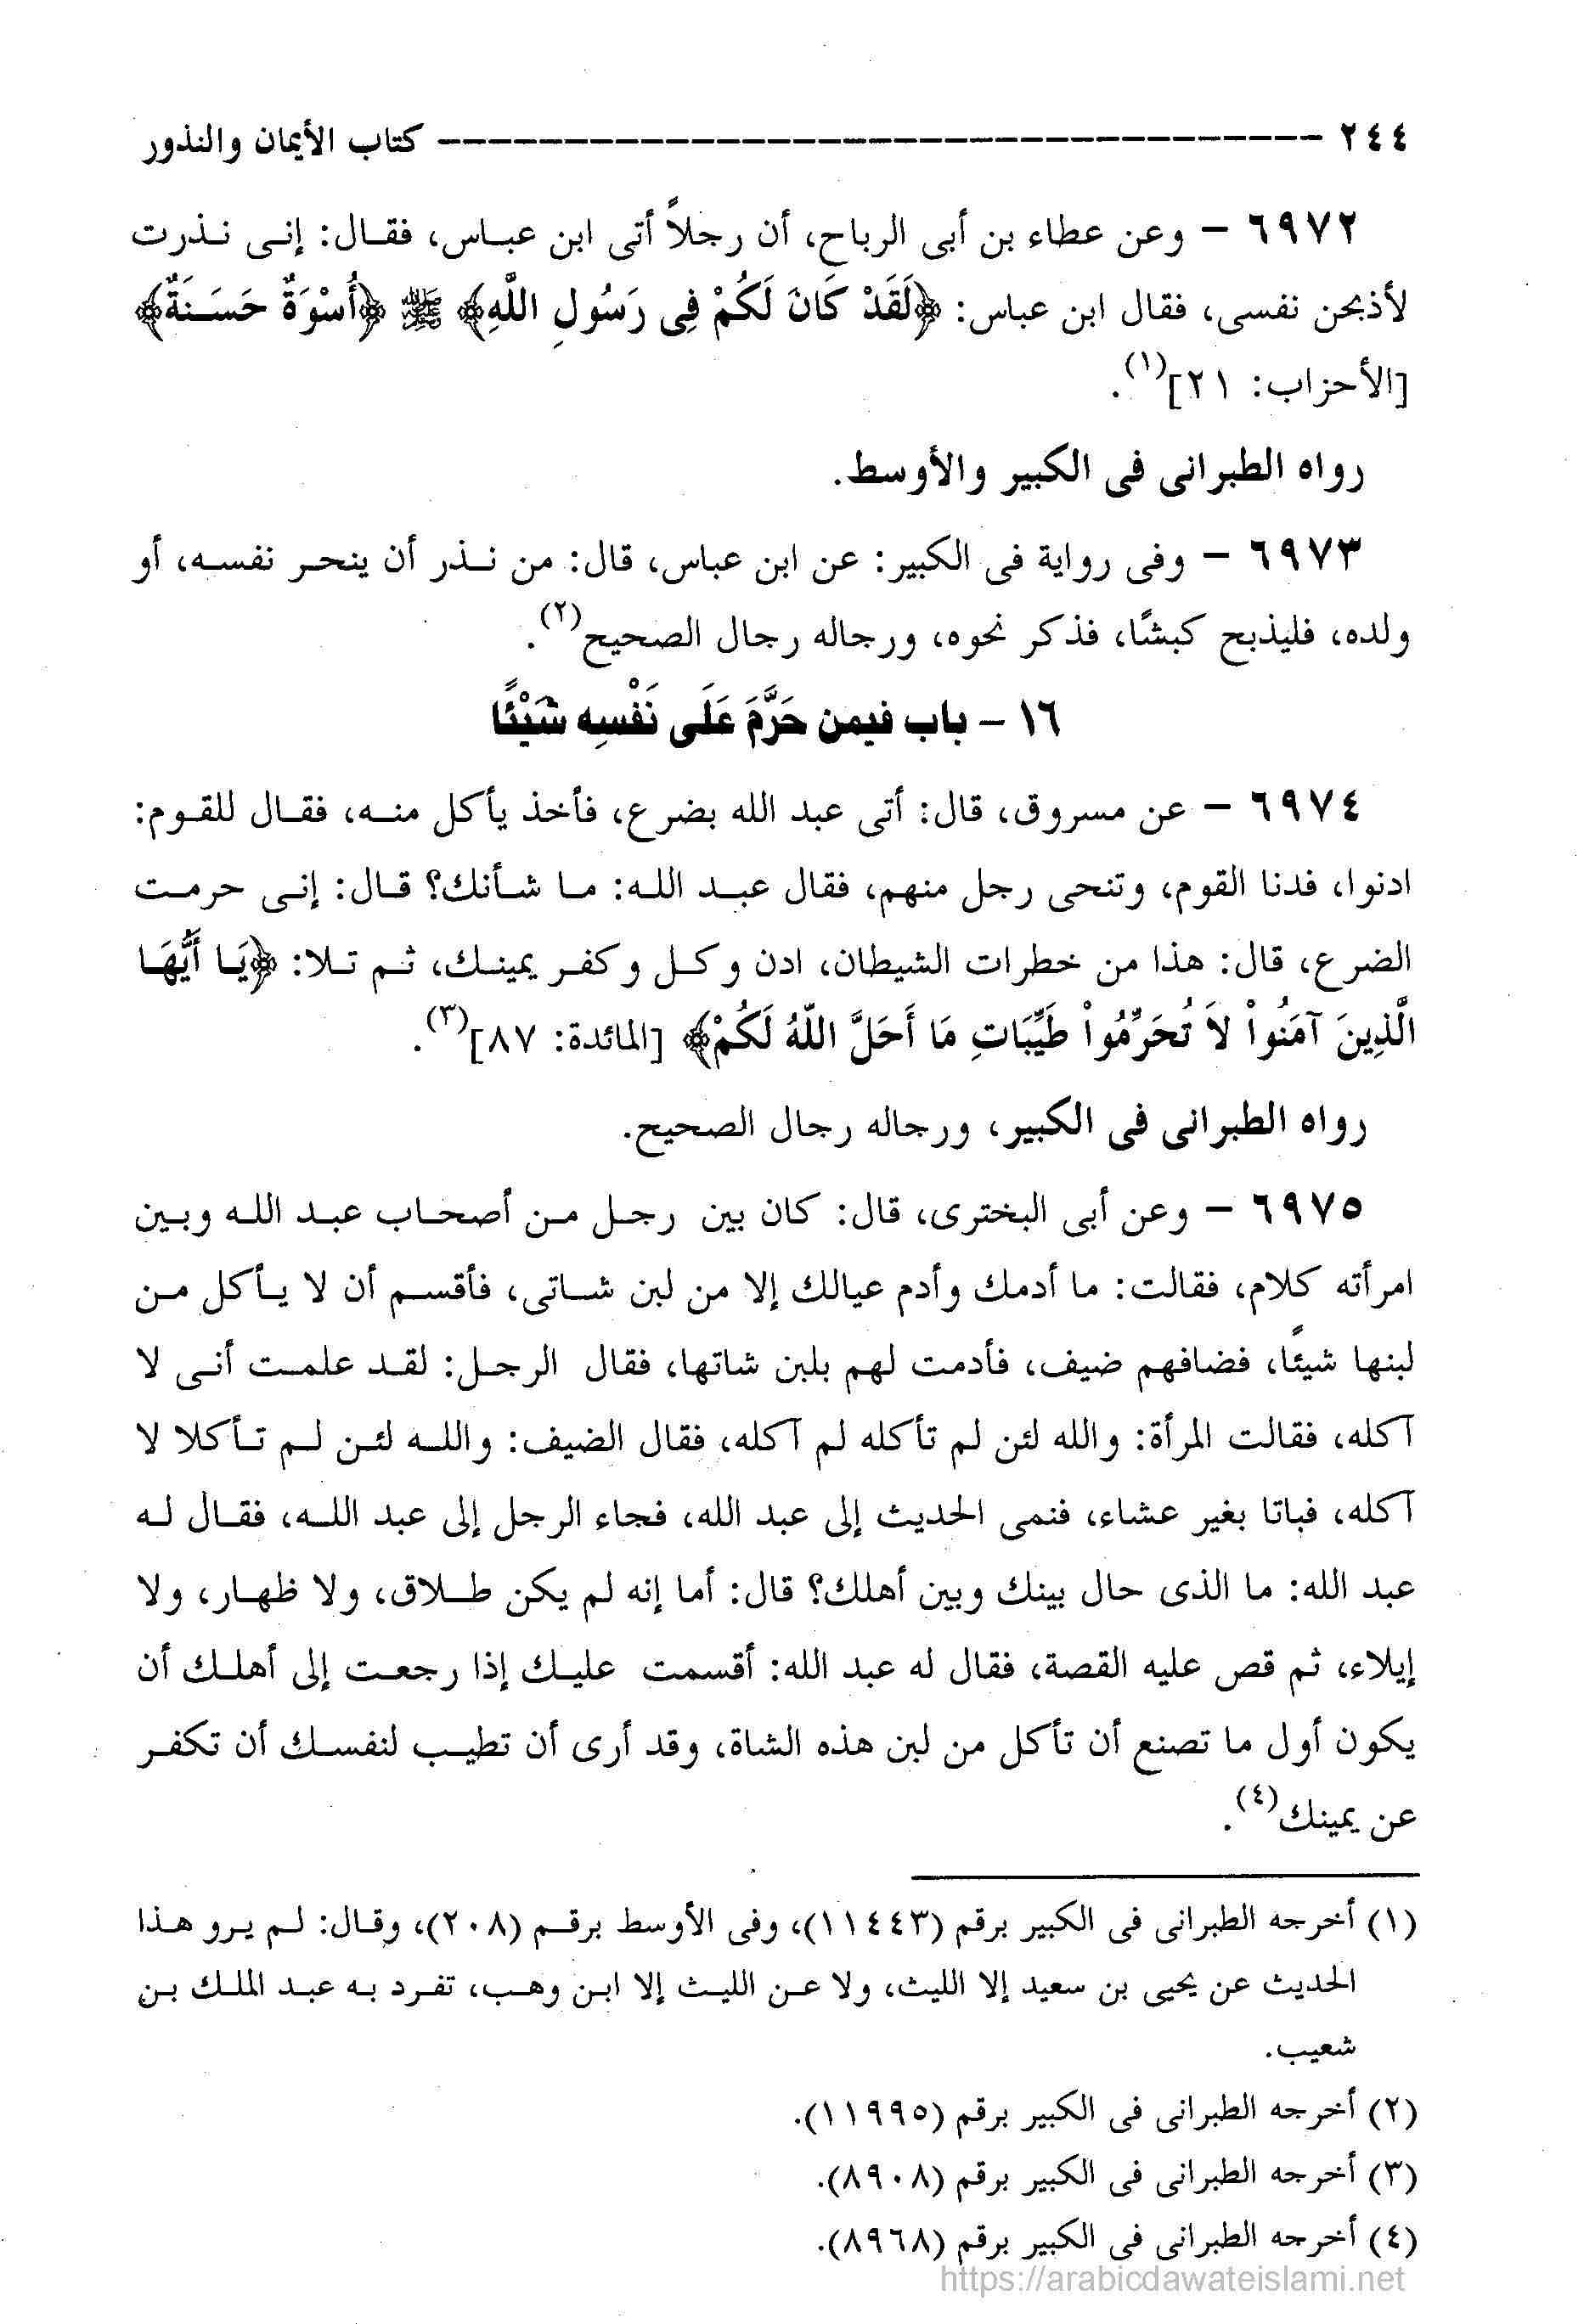 ٢٤٤ ----------------------------------- كتاب الأيمان والنذور
٦٩٧٢ – وعن عطاء بن أبى الرباح، أن رجلاً أتى ابن عبـاس، فقـال: إنـى نـذرت
لأذبحن نفسى، فقال ابن عباس: ﴿لَقَدْ كَانَ لَكُمْ فِى رَسُولِ اللَّهِ﴾ ﷺ ﴿أُسْوَةٌ حَسَـنَةٌ﴾
[الأحزاب: ٢١](١).
رواه الطبرانى فى الكبير والأوسط.
٦٩٧٣ – وفى رواية فى الكبير: عن ابن عباس، قال: من نـذر أن ينحـر نفسـه، أو
ولده، فليذبح كبشًا، فذكر نحوه، ورجاله رجال الصحيح(٢).
١٦ – باب فيمن حَرَّمَ عَلَى نَفْسِه شَيْئًا
٦٩٧٤ – عن مسروق، قال: أتى عبد الله بضرع، فأخذ يأكل منـه، فقـال للقـوم:
ادنوا، فدنا القوم، وتنحى رجل منهم، فقال عبـد اللـه: مـا شـأنك؟ قـال: إنـى حرمـت
الضرع، قال: هذا من خطرات الشيطان، ادن وكـل وكفـر يمينـك، ثـم تـلا: ﴿يَـا أَيُّهَـا
الَّذِينَ آمَنُواْ لاَ تُحَرِّمُواْ طَيِّبَاتِ مَا أَحَلَّ اللَّهُ لَكُمْ﴾ [المائدة: ٨٧](٣).
رواه الطبرانى فى الكبير، ورجاله رجال الصحيح.
٦٩٧٥ – وعن أبى البخترى، قال: كان بين رجـل مـن أصحـاب عبـد اللـه وبـين
امرأته كلام، فقالت: ما أدمك وأدم عيالك إلا من لبن شـاتى، فأقسـم أن لا يـأكل مـن
لبنها شيئًا، فضافهم ضيف، فأدمت لهم بلبن شاتها، فقال الرجـل: لقـد علمـت أنـى لا
آكله، فقالت المرأة: والله لئن لم تأكله لم آكله، فقال الضيف: واللـه لئـن لـم تـأكلا لا
آكله، فباتا بغير عشاء، فنمى الحديث إلى عبد الله، فجاء الرجل إلى عبد اللـه، فقـال لـه
عبد الله: ما الذى حال بينك وبين أهلك؟ قال: أما إنه لم يكن طـلاق، ولا ظهـار، ولا
إيلاء، ثم قص عليه القصة، فقال له عبد الله: أقسمت عليـك إذا رجعـت إلى أهلـك أن
يكون أول ما تصنع أن تأكل من لبن هذه الشاة، وقد أرى أن تطيـب لنفسـك أن تكفـر
عن يمينك(٤).
(١) أخرجه الطبرانى فى الكبير برقم (١١٤٤٣)، وفى الأوسط برقـم (٢٠٨)، وقـال: لـم يـرو هـذا
الحديث عن يحيى بن سعيد إلا الليث، ولا عـن الليـث إلا ابـن وهـب، تفـرد بـه عبـد الملـك بـن
شعيب.
(٢) أخرجه الطبرانى فى الكبير برقم (١١٩٩٥).
(٣) أخرجه الطبرانى فى الكبير برقم (٨٩٠٨).
(٤) أخرجه الطبرانى فى الكبير برقم (٨٩٦٨).
https://arabicdawateislami.net